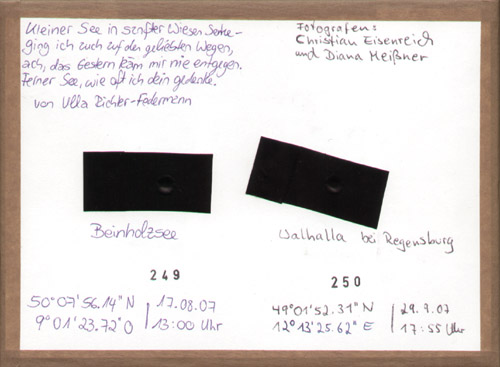 Kleiner See in sanfter Wiesen Senke -
ging ich auch auf den geliebten Wegen,
ach, das Gestern käm mir nie entgegen.
Ferner See, wie oft ich dein gedenke.
von Ulla Richter-Federmann
Fotografen:
Christian Eisenreich
und Diana Meißner
Beinholzsee
Walhalla bei Regensburg
249
250
50°07'56.14"N
9°01'23.72"O
17.08.07
13:00 Uhr
49°01'52.31"N
12°13'25.62"E
29.7.07
17:55 Uhr